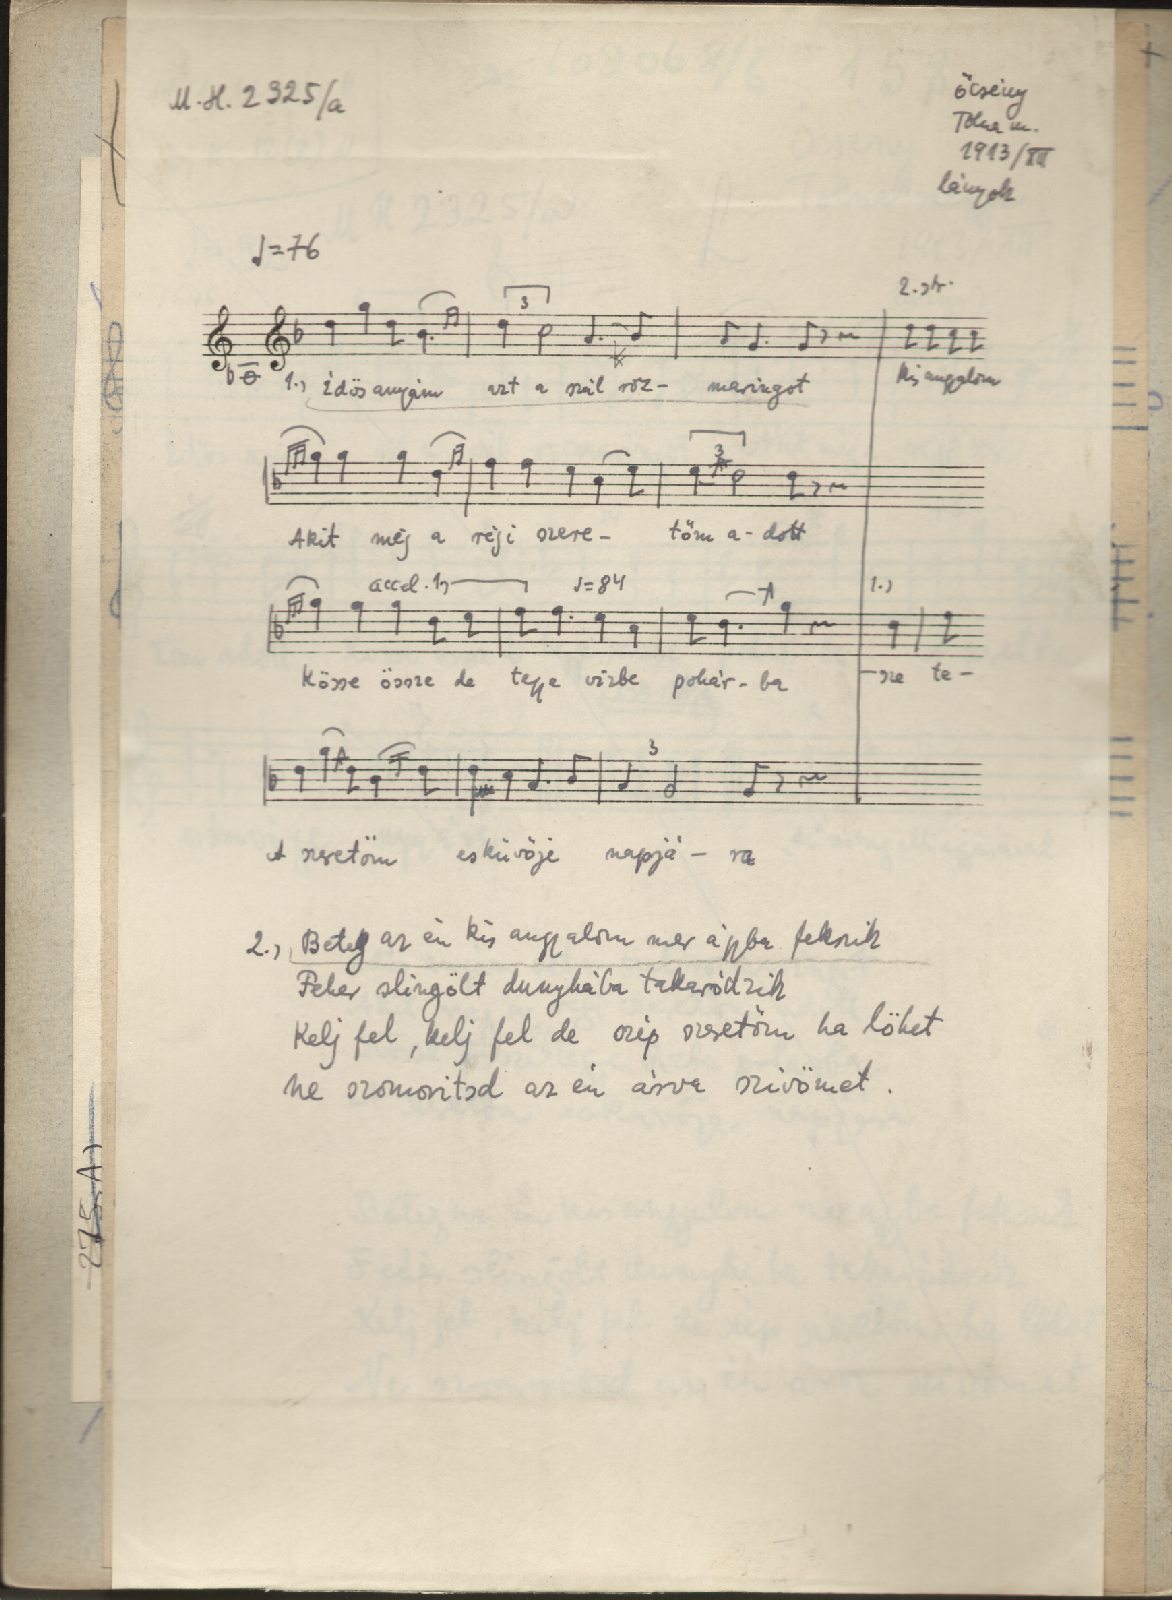 M.H. 2325/a
Őcsény
Tolna m.
1913/III
lányok
♩=76
2. str.
3
1.) Édösanyám azt a szál róz- maringot
kis angyalom
3
Akit még a régi szere- töm a-dott
accel. 1) ♩=84
1.)
Kösse össze de tegye vízbe pohár-ba
-sze te-
3
A szeretöm esküvője napjá-ra
2.) Beteg az én kis angyalom mer ágyba fekszik
Feher slingölt dunyhába takaródzik
Kelj fel, kelj fel de szép szeretöm ha löhet
Ne szomoritsd az én árva szivömet.
275 A)